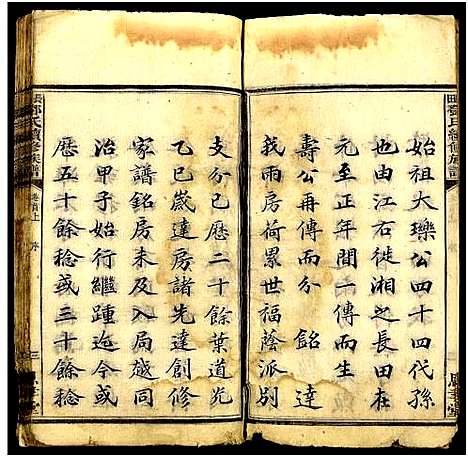 始祖大瓅公四十四代孫
也由江右徙湘之長田在
元至正年間一傳而生
壽公再傳而分 銘 達
我雨房荷累世福蔭派別
支分已歷二十餘葉道光
乙巳歲達房諸先達創修
家譜銘房未及入局越同
治甲子始行繼踵迄今或
歷五十餘稔或三十餘稔
鄧氏續修族譜
卷首上 序 三